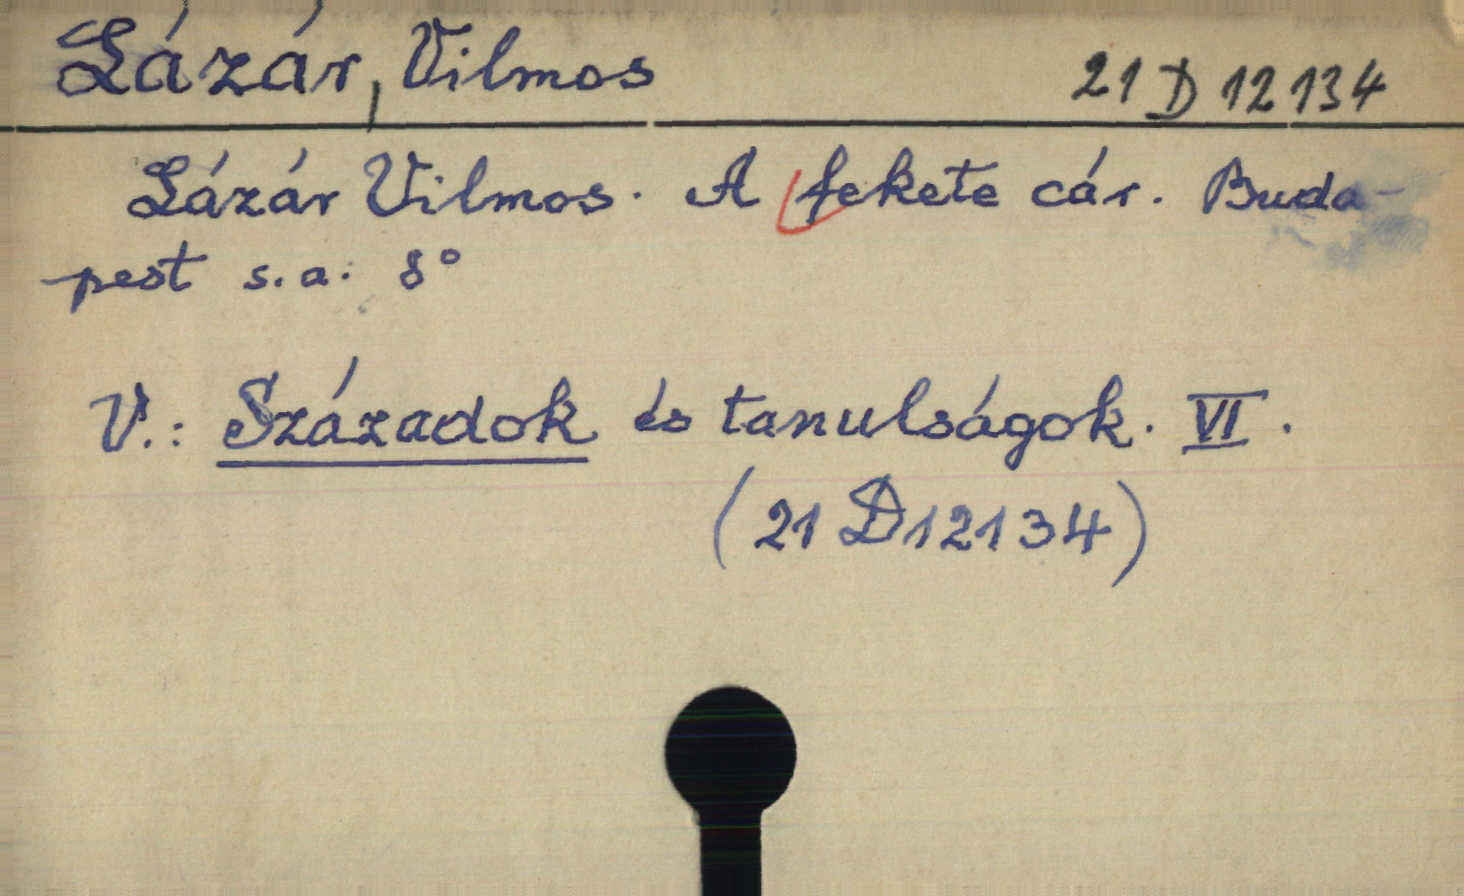 Lázár, Vilmos 21 D 12134
Lázár Vilmos. A fekete cár. Buda-
pest s.a. 8°
V.: Századok és tanulságok. VI.
(21 D 12134)